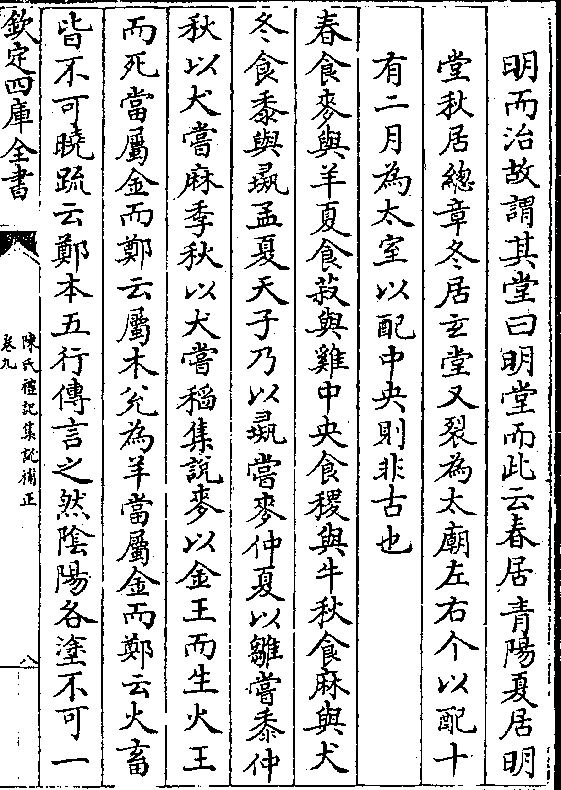 明而治故謂其堂曰明堂而此云春居青陽夏居明
堂秋居總章冬居玄堂又裂為太廟左右个以配十
有二月為太室以配中央則非古也
春食麥與羊夏食菽與雞中央食稷與牛秋食麻與犬
冬食黍與彘孟夏天子乃以彘嘗麥仲夏以雛嘗黍仲
秋以犬嘗麻季秋以犬嘗稻集說麥以金王而生火王
而死當屬金而鄭云屬木兊為羊當屬金而鄭云火畜
皆不可曉疏云鄭本五行傳言之然陰陽各塗不可一
欽定四庫全書
陳氏禮記集說補正
卷九
八